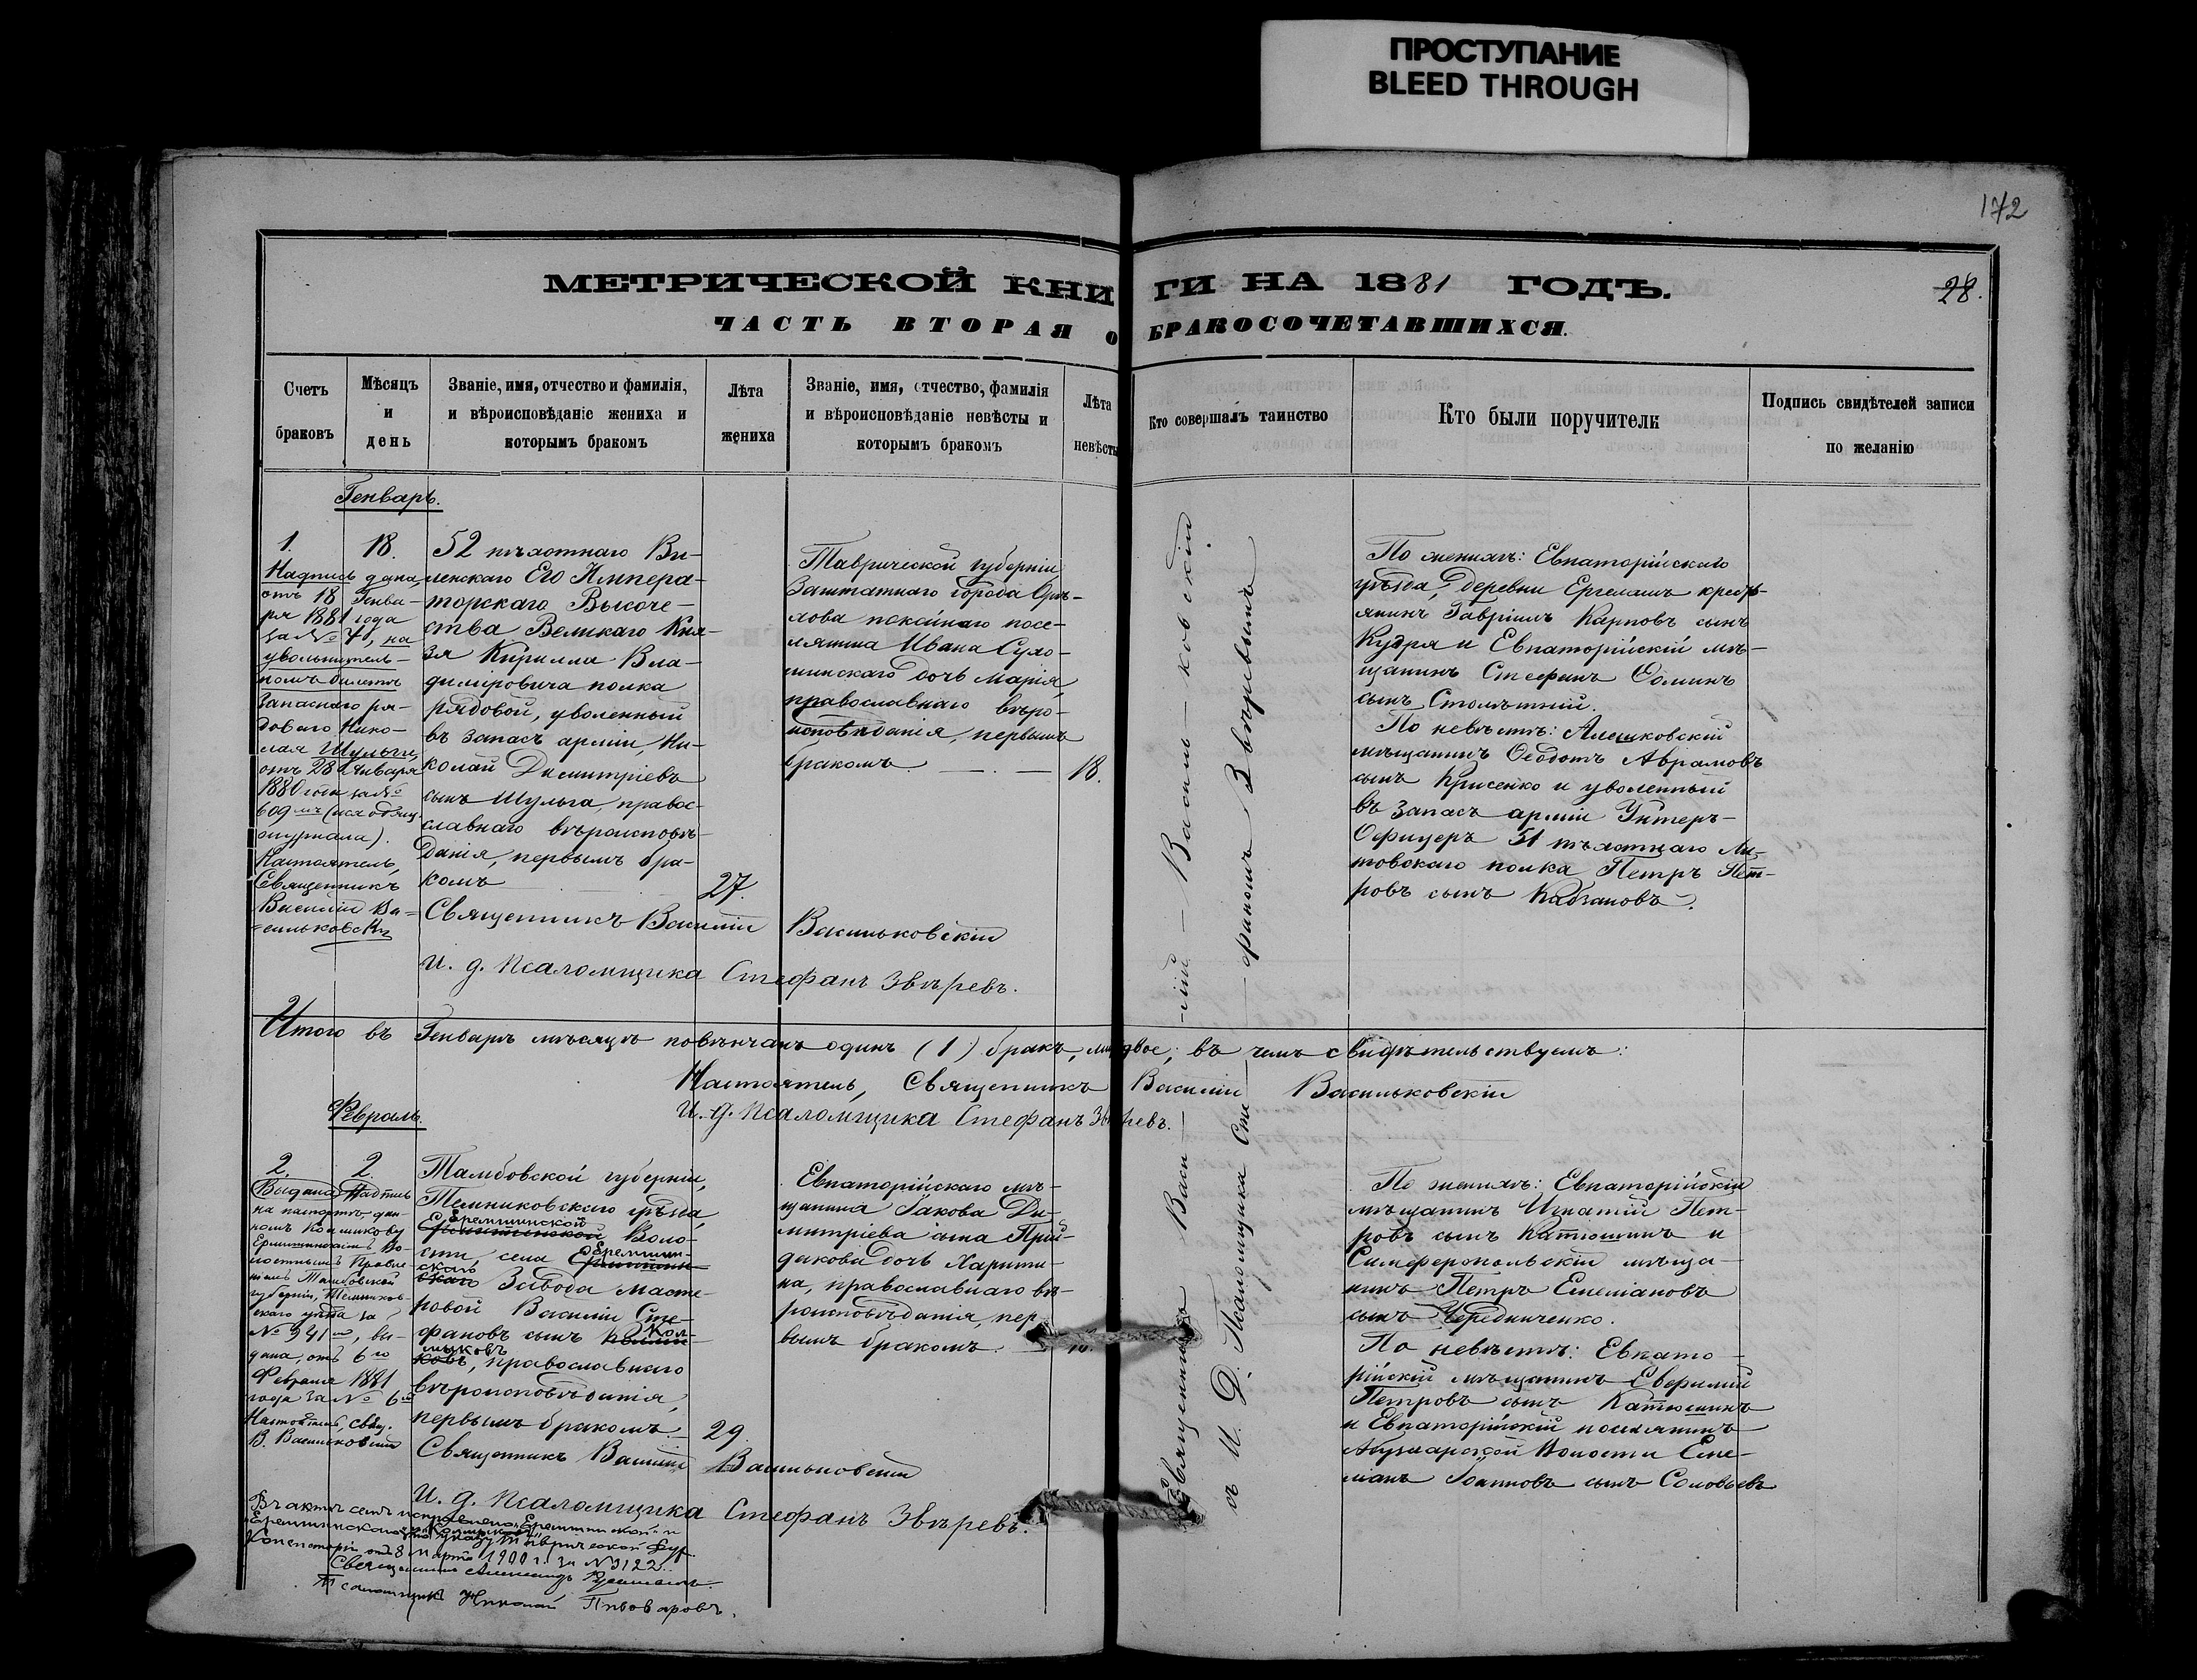 ПРОСТУПАНИЕ
BLEED THROUGH
172
МЕТРИЧЕСКОЙ КНИГИ НА 1881 ГОДЪ.
28.
ЧАСТЬ ВТОРАЯ О БРАКОСОЧЕТАВШИХСЯ.
Счетъ
браковъ
Мѣсяцъ
и
день
Званіе, имя, отчество и фамилія,
и вѣроисповѣданіе жениха и
которымъ бракомъ
Лѣта
жениха
Званіе, имя, отчество, фамилія
и вѣроисповѣданіе невѣсты и
которымъ бракомъ
Лѣта
невѣсты
Кто совершалъ таинство
Кто были поручители
Подпись свидѣтелей записи
по желанію
Генварь.
1.
Надпись дана,
отъ 18 Генва-
ря 1881 года
за №, на
увольнитель-
номъ билетѣ
Запаснаго ря-
доваго Нико-
лая Шульги,
отъ 28 Января
1880 года за №
609
журнала).
Настоятель,
Священникъ
Василій Ва-
сильковскій
18.
52 пѣхотнаго Ви-
ленскаго Его Импера-
торскаго Высоче-
ства Великаго Кня-
зя Кирилла Вла-
димировича полка
рядовой, уволенный
въ запасъ арміи, Ни-
колай Димитріевъ
сынъ Шульга, правос-
лавнаго вѣроисповѣ-
данія, первымъ бра-
комъ
27.
Таврической губерніи
Заштатнаго города Орѣ-
хова покойнаго посе-
лянина Ивана Суло-
шинскаго дочь Марія,
православнаго вѣро-
исповѣданія, первымъ
бракомъ.
18.
Священникъ Василій Васильковскій
и. д. Псаломщика Стефанъ Звѣревъ.
По женихѣ: Евпаторійскаго
уѣзда, деревни Ергелашъ крестъ-
янинъ Гавріилъ Карповъ сынъ
Кудря и Евпаторійскій мѣ-
щанинъ Стефанъ Ѳоминъ
сынъ Столѣтній.
По невѣстѣ: Алешковскій
мѣщанинъ Ѳеодотъ Аврамовъ
сынъ Крисенко и уволенный
въ запасъ арміи Унтеръ-
Офицеръ 51 пѣхотнаго Ли-
товскаго полка Петръ Пет-
ровъ сынъ Кабзановъ.
Итого въ Генварѣ мѣсяцѣ повѣнчанъ одинъ (1) бракъ, лицъ двое; въ чемъ свидѣтельствуемъ:
Настоятель, Священникъ Василій Васильковскій
И. д. Псаломщика Стефанъ Звѣревъ.
Февраль.
2.
Выдана Надпись
на паспортѣ, дан-
номъ Колмыкову
Ермишинскимъ Во-
лостнымъ Правле-
ніемъ Тамбовской
губерніи, Темников-
скаго уѣзда за
№ 941, вы-
дана, отъ 6го
Февраля 1881
года за № 6
Настоятель, свящ.
В. Васильковскій
2
Тамбовской губерніи,
Темниковскаго уѣзда,
Еремшинской
Воло-
сти, села Еремшин-
скаго
Завода Масте-
ровой Василій Сте-
фановъ сынъ Кол-
мыковъ
, православнаго
вѣроисповѣданія,
первымъ бракомъ.
29.
Евпаторійскаго мѣ-
щанина Іакова Ди-
митріева сына Прій-
дакова дочь Харити-
на, православнаго вѣ-
роисповѣданія, пер-
вымъ бракомъ.
Священникъ Василій Васильковскій
И. д. Псаломщика Стефанъ Звѣревъ.
По женихѣ: Евпаторійскій
мѣщанинъ Игнатій Пет-
ровъ сынъ Катюшинъ и
Симферопольскій мѣща-
нинъ Петръ Емеліановъ
сынъ Чередниченко.
По невѣстѣ: Евпато-
рійскій мѣщанинъ Евфимій
Петровъ сынъ Катюшинъ
и Евпаторійскій поселянинъ
Абузларской Волости Еме-
ліанъ Іоанновъ сынъ Соловьевъ
Священникъ Василій Васильковскій
съ И. Д. Псаломщика Стефаномъ Звѣревымъ
Въ актѣ семъ исправлено: "Еремшинской" и
"Еремшинскаго" "Колмыковъ" по указу Таврической Дух.
Консисторіи отъ 8 марта 1900 г. за № 3122.
Священникъ Александръ
Псаломщикъ Николай Пивоваровъ.